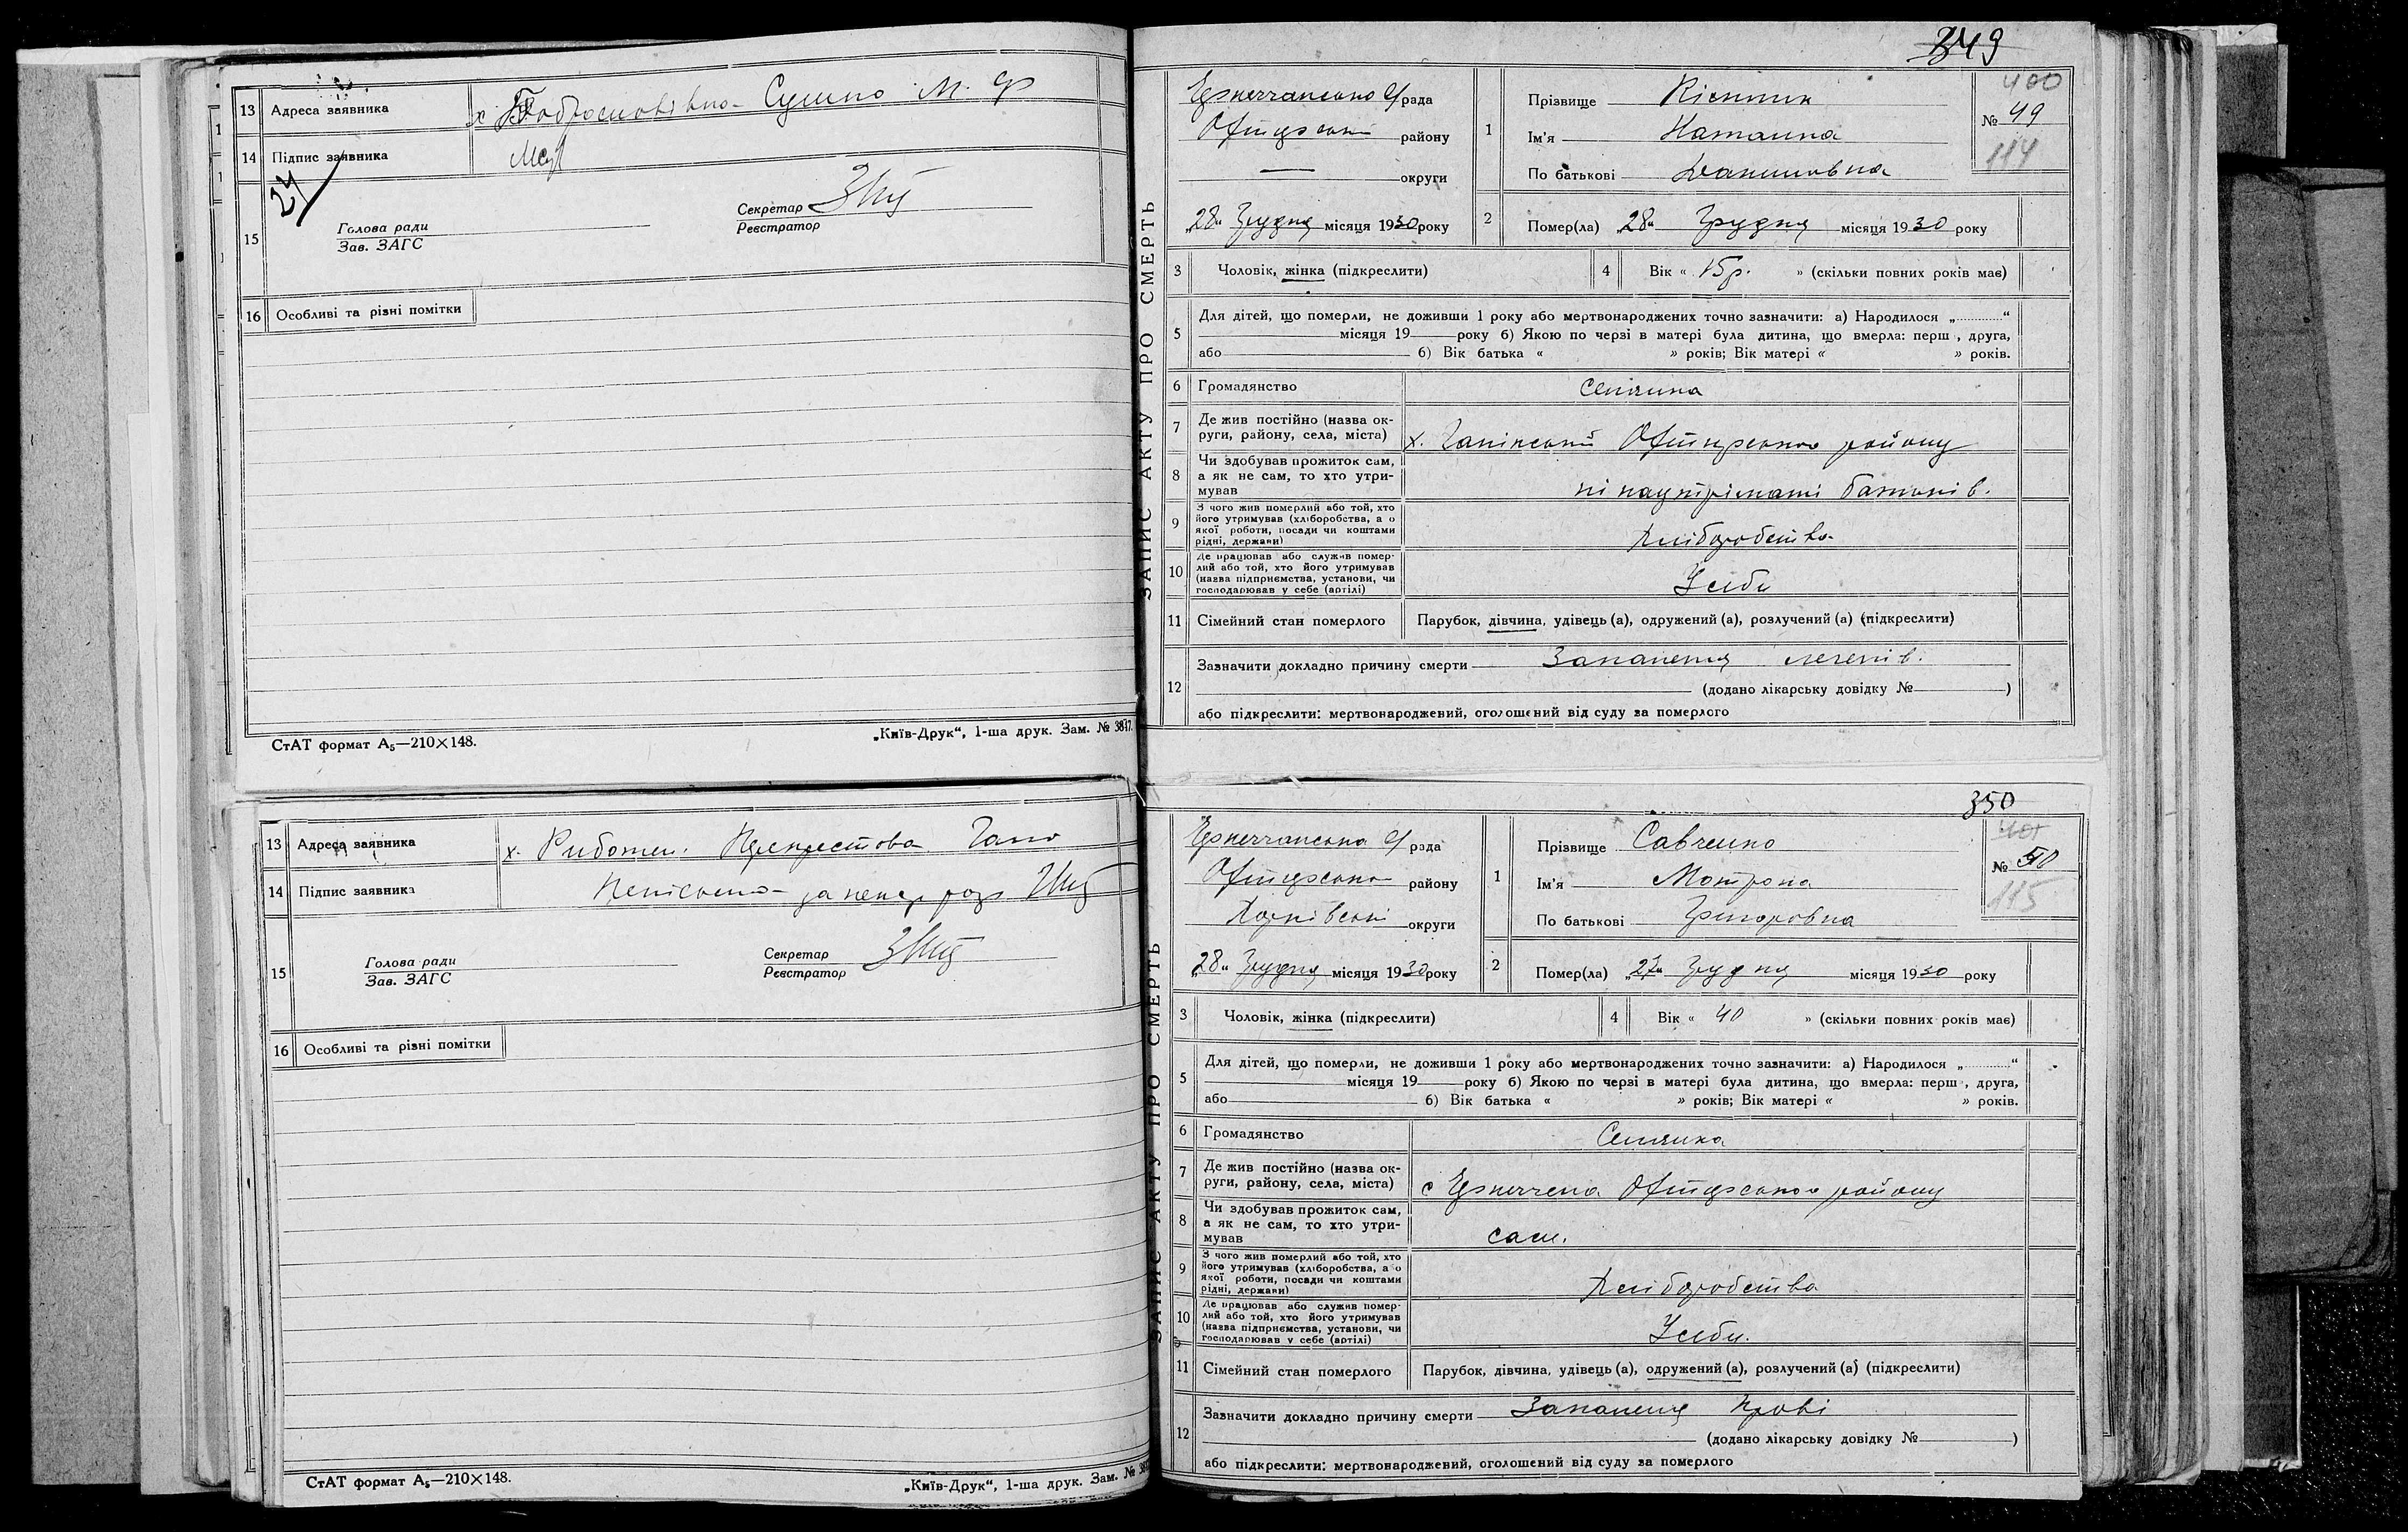 13 Адреса заявника х Сушко М. Ф
14 Підпис заявника
24
15 Голова ради
Зав. ЗАГС
Секретар
Реєстратор
16 Особливі та різні помітки
СтАТ формат А₅—210×148. „Київ-Друк“, 1-ша друк. Зам. № 3837.
13 Адреса заявника х.
14 Підпис заявника
15 Голова ради
Зав. ЗАГС
Секретар
Реєстратор
16 Особливі та різні помітки
СтАТ формат А₅—210×148. „Київ-Друк“, 1-ша друк. Зам. №
349
ЗАПИС АКТУ ПРО СМЕРТЬ
с/рада
району
округи
„28“ Грудня місяця 1930 року
1 Прізвище
Ім'я Наталка
По батькові Даниловна
400
№ 49
114
2 Помер(ла) „28“ Грудня місяця 1930 року
3 Чоловік, жінка (підкреслити)
4 Вік « 15 р. » (скільки повних років має)
5 Для дітей, що померли, не доживши 1 року або мертвонароджених точно зазначити: а) Народилося „............“
місяця 19 року б) Якою по черзі в матері була дитина, що вмерла: перш , друга,
або б) Вік батька « » років; Вік матері « » років.
6 Громадянство селянка
7 Де жив постійно (назва округи, району, села, міста) х. району
8 Чи здобував прожиток сам, а як не сам, то хто утримував батьків.
9 З чого жив померлий або той, хто його утримував (хліборобства, а о якої роботи, посади чи коштами рідні, держави) Хліборобства
10 Де працював або служив померлий або той, хто його утримував (назва підприємства, установи, чи господарював у себе (артілі) У себе
11 Сімейний стан померлого Парубок, дівчина, удівець (а), одружений (а), розлучений (а) (підкреслити)
12 Зазначити докладно причину смерти Запалення легенів.
(додано лікарську довідку № )
або підкреслити: мертвонароджений, оголошений від суду за померлого
350
ЗАПИС АКТУ ПРО СМЕРТЬ
с/рада
району
Харківської округи
„28“ Грудня місяця 1930 року
1 Прізвище Савченко
Ім'я Мотрона
По батькові Григоровна
401
№ 50
115
2 Помер(ла) „27“ Грудня місяця 1930 року
3 Чоловік, жінка (підкреслити)
4 Вік « 40 » (скільки повних років має)
5 Для дітей, що померли, не доживши 1 року або мертвонароджених точно зазначити: а) Народилося „............“
місяця 19 року б) Якою по черзі в матері була дитина, що вмерла: перш , друга,
або б) Вік батька « » років; Вік матері « » років.
6 Громадянство Селянка
7 Де жив постійно (назва округи, району, села, міста) с району
8 Чи здобував прожиток сам, а як не сам, то хто утримував сам.
9 З чого жив померлий або той, хто його утримував (хліборобства, а о якої роботи, посади чи коштами рідні, держави) Хліборобства
10 Де працював або служив померлий або той, хто його утримував (назва підприємства, установи, чи господарював у себе (артілі) У себе.
11 Сімейний стан померлого Парубок, дівчина, удівець (а), одружений (а), розлучений (а) (підкреслити)
12 Зазначити докладно причину смерти Запалення крові
(додано лікарську довідку № )
або підкреслити: мертвонароджений, оголошений від суду за померлого